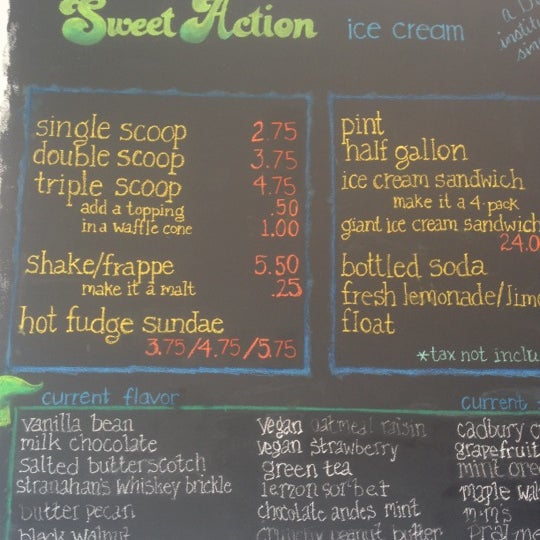 Sweet Action ice cream
single scoop 2.75
double scoop 3.75
triple scoop 4.75
add a topping .50
in a waffle cone 1.00
shake/frappe 5.50
make it a malt .25
hot fudge sundae
3.75/4.75/5.75
pint
half gallon
ice cream sandwich
make it a 4-pack
giant ice cream sandwich
24.0
bottled soda
fresh lemonade/lime
float
*tax not inclu
current flavor
vanilla bean
milk chocolate
salted butterscotch
stranahan's whiskey brickle
butter pecan
black walnut
vegan oatmeal raisin
vegan strawberry
green tea
lemon sorbet
chocolate andes mint
crunchy peanut butter
current
cadbury c
grapefruit
mint oreo
maple wal
m·m's